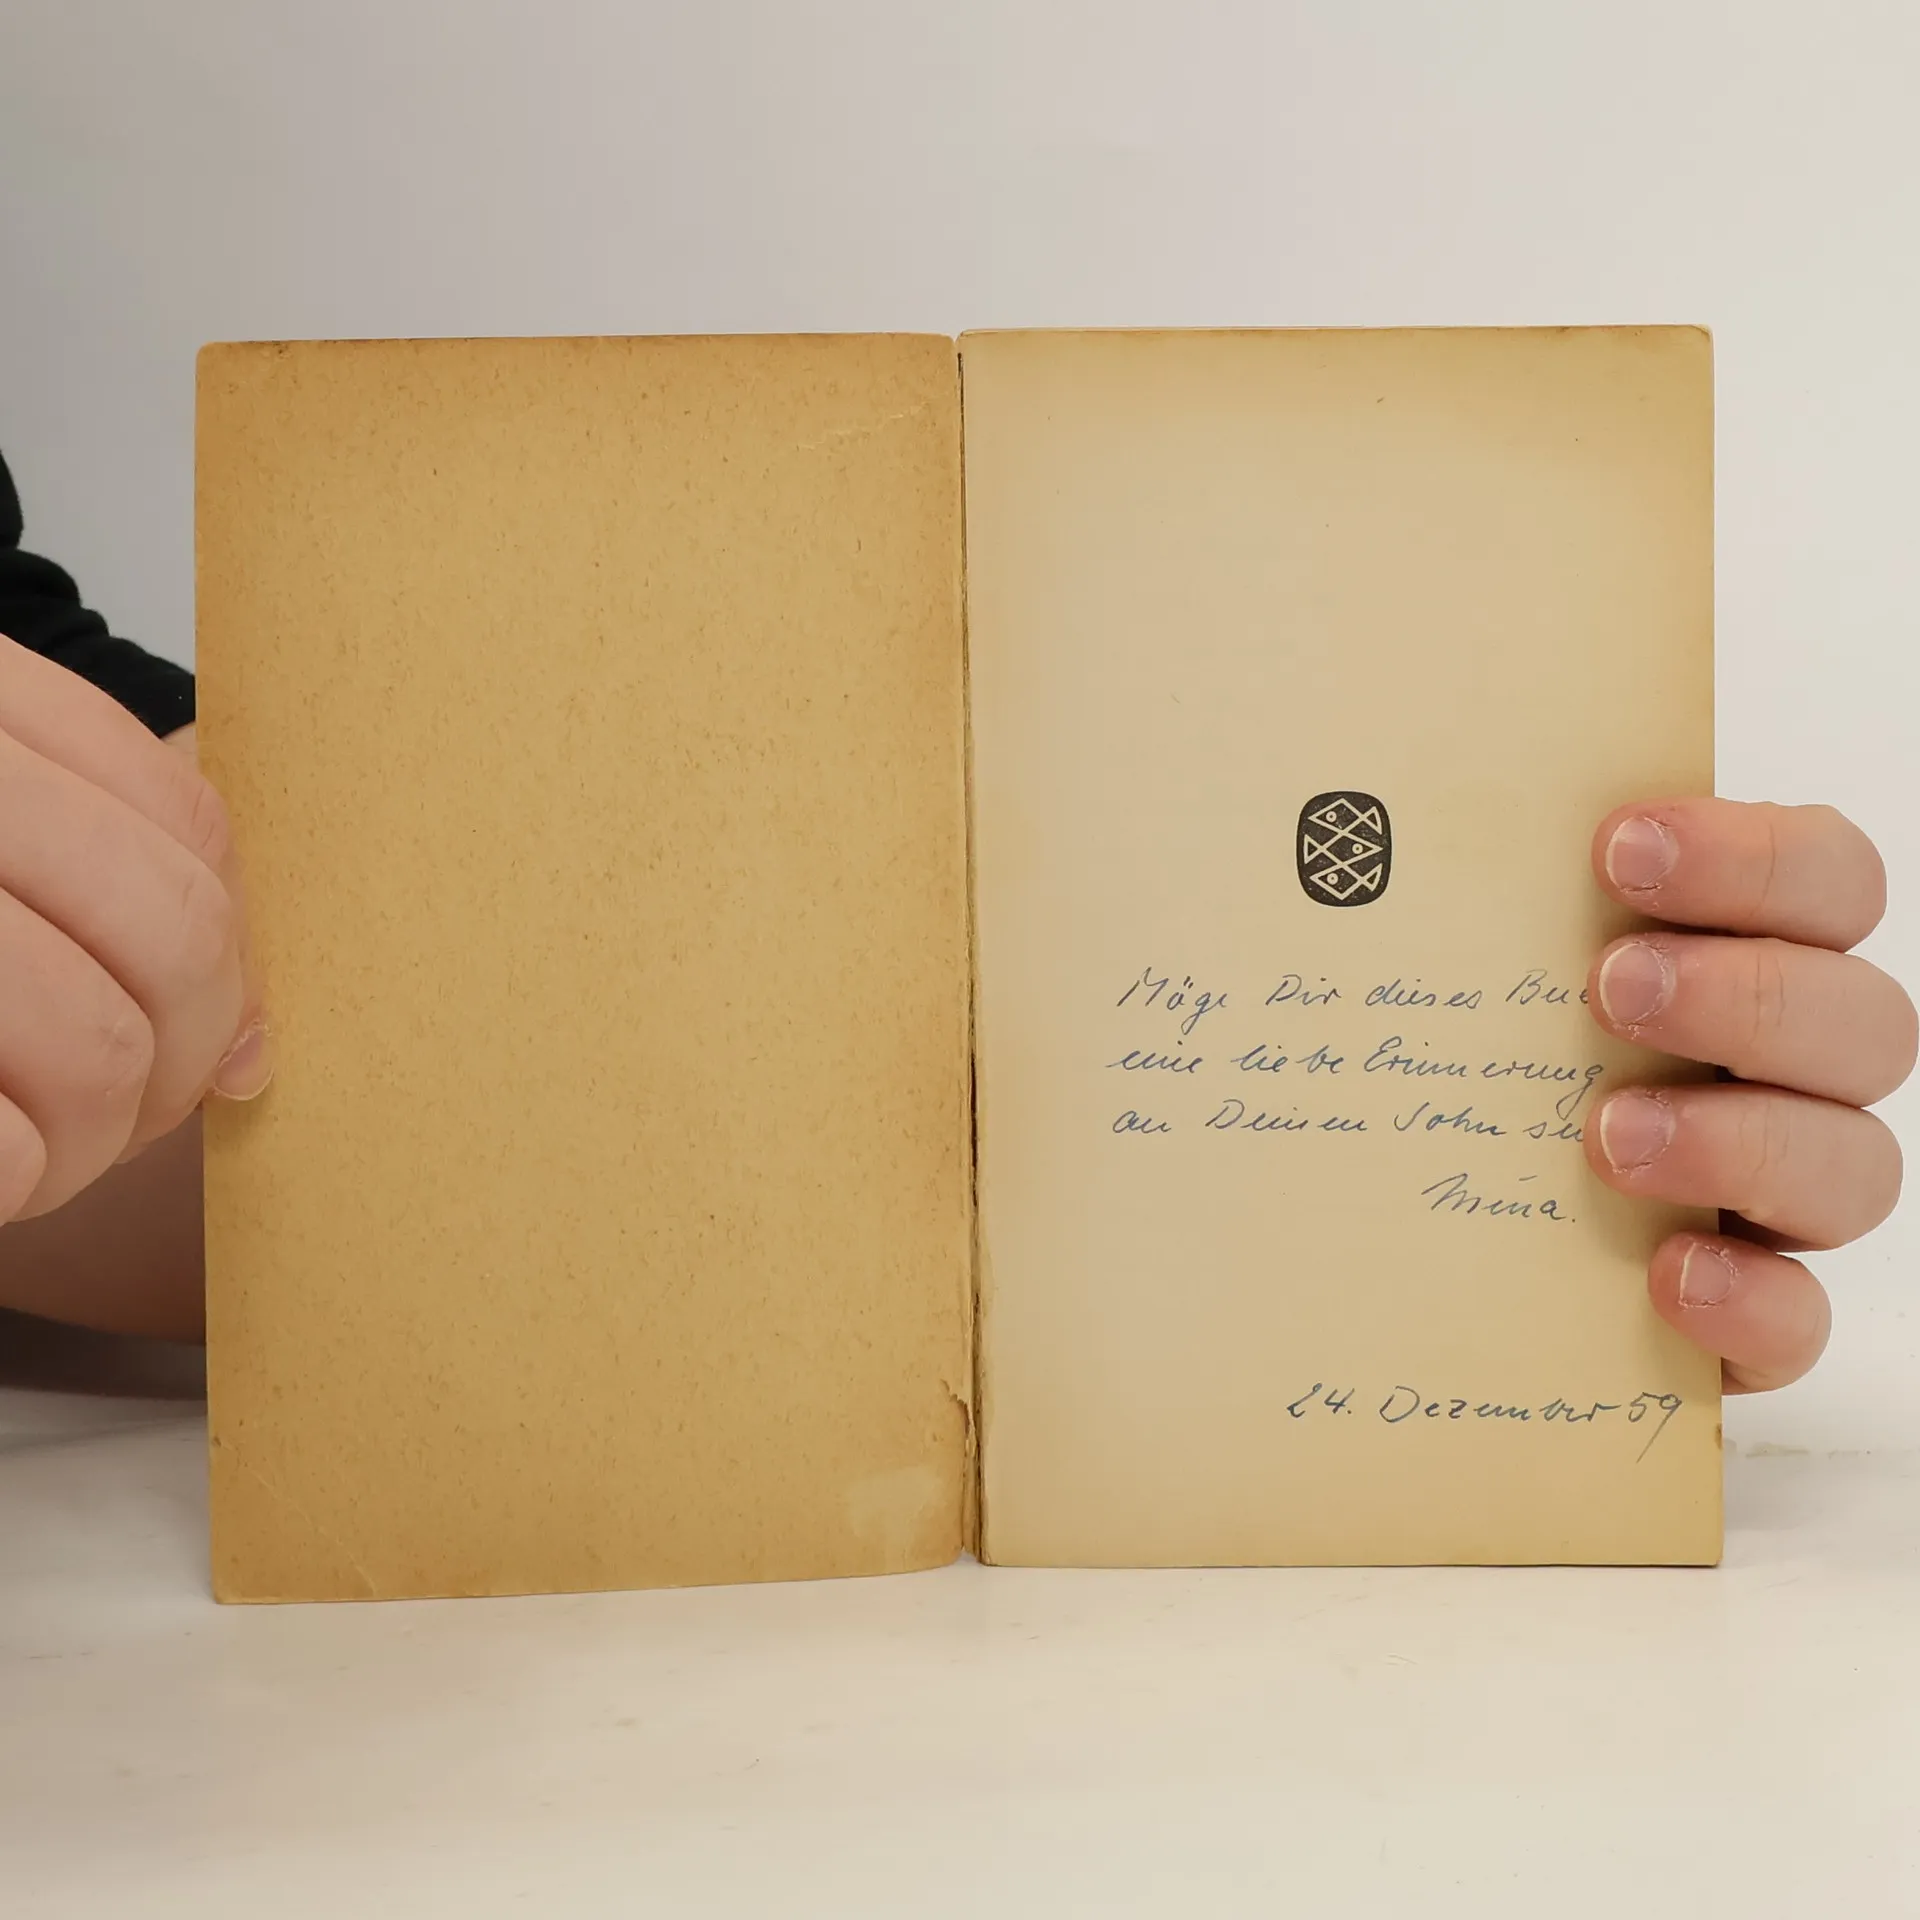 Möge Dir dieses Buc
eine liebe Erinnerung
an Deinen Sohn sei
Mina.
24. Dezember 59